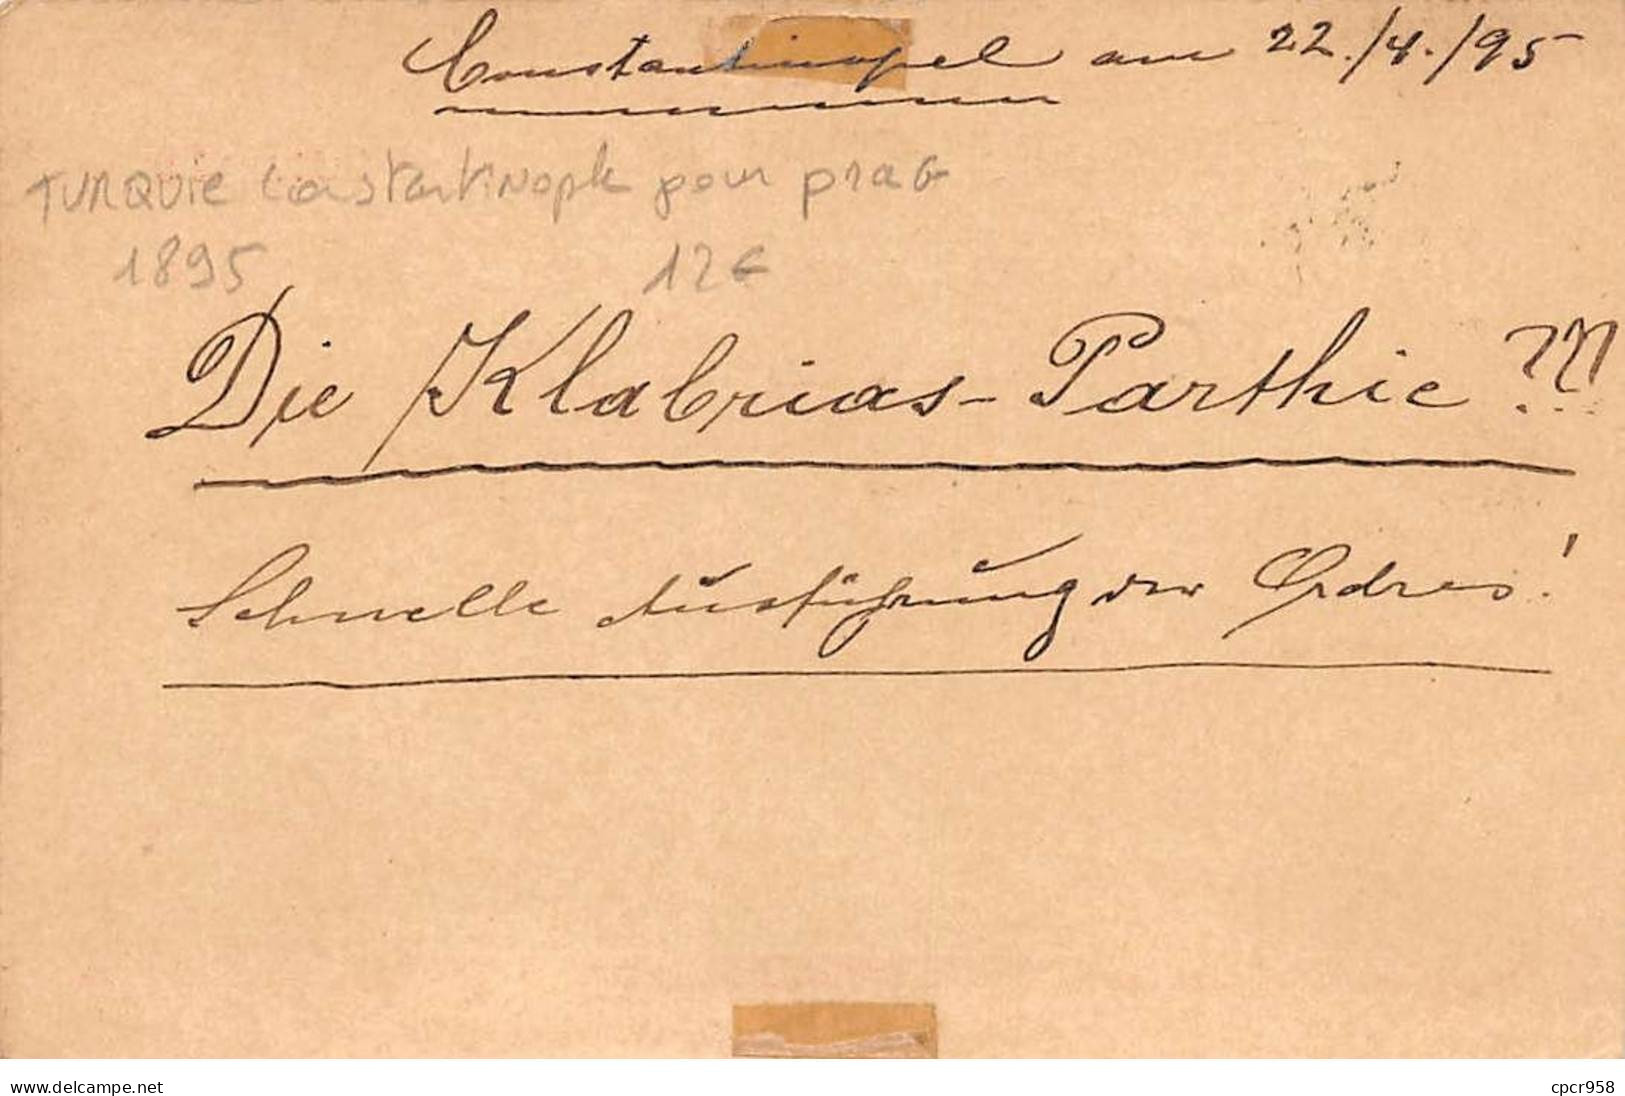 Constantinopel am 22./4./95
TURQUIE Constantinople pour prag
1895 12€
Die Klabrias-Parthie???
Schnelle Ausführung der Ordres!
www.delcampe.net cpcr958